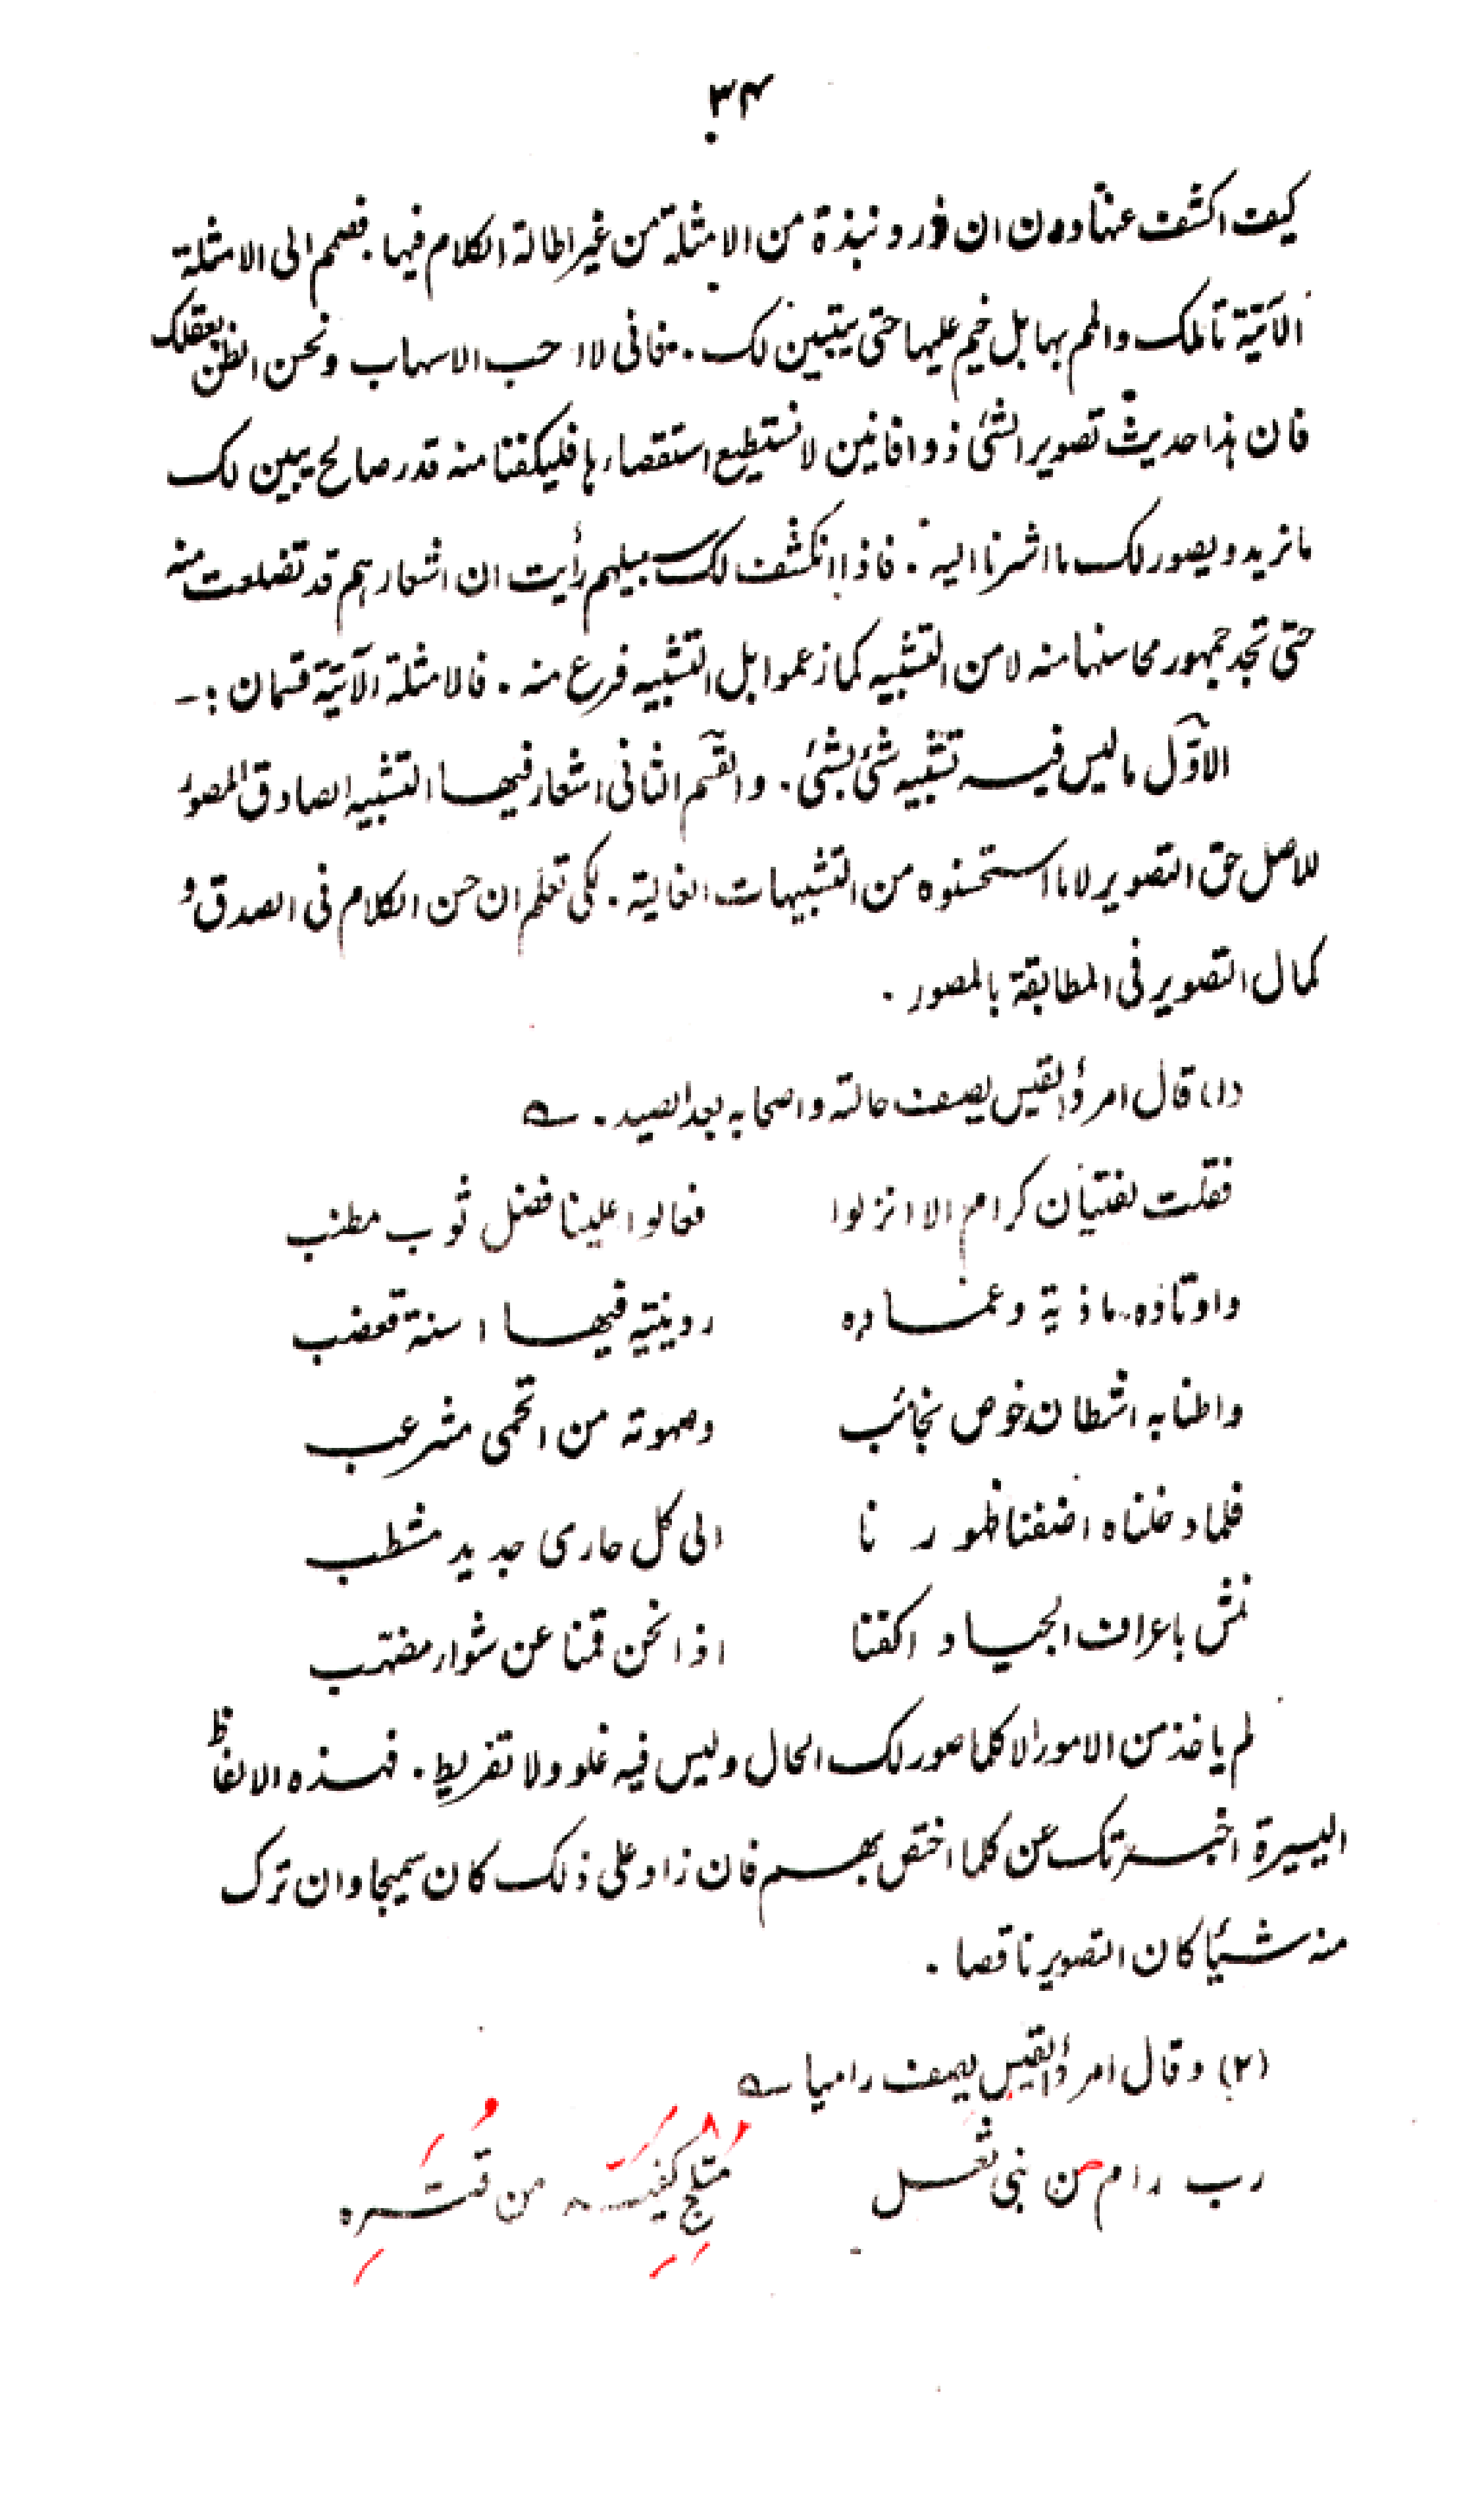 ۳۴
كيف اكشف عنها دون ان نورد نبذة من الامثلة من غير اطالة الكلام فيها. فصمم الى الامثلة
الآتية تأملك والمم بها بل خيم عليها حتى يتبين لك. فانى لا احب الاسهاب ونحن الظن بعقلك
فان هذا حديث تصوير الشئ ذو افانين لا نستطيع استقصاءها فليكفنا منه قدر صالح يبين لك
ما نريد ويصور لك ما اشرنا اليه. فاذا انكشف لك سبيلهم رأيت ان اشعارهم قد تضلعت منه
حتى تجد جمهور محاسنها منه لا من التشبيه كما زعموا بل التشبيه فرع منه. فالامثلة الآتية قسمان :-
الاوّل ما ليس فيه تشبيه شئ بشئ. والقسم الثانى اشعار فيها التشبيه الصادق المصور
للاصل حق التصوير لا ما استحسنوه من التشبيهات الغالية. لكى تعلم ان حسن الكلام فى الصدق و
كمال التصوير فى المطابقة بالمصور.
(۱) قال امرؤ القيس يصف حالته واصحابه بعد الصيد. ؎
فقلت لفتيان كرام الا انزلوا فعالوا علينا فضل ثوب مطنب
واوتاده ماذية وعماده ردينية فيها اسنة قعضب
واطنابه اشطان خوص نجائب وصهوته من اتحمى مشرعب
فلما دخلناه اضفنا ظهورنا الى كل حارى جديد مشطب
نمش باعراف الجياد اكفنا اذا نحن قمنا عن شواء مضهّب
لم ياخذ من الامور الا كلما صور لك الحال وليس فيه غلو ولا تفريط. فهذه الالفاظ
اليسيرة اخبرتك عن كلما اختص بهم فان زاد على ذلك كان سميجا وان ترك
منه شيئا كان التصوير ناقصا.
(۲) وقال امرؤ القيس يصف راميا ؎
رب رام من بنى ثعل مُتْلِجٍ كَفَّيْهِ من قُتَرِه